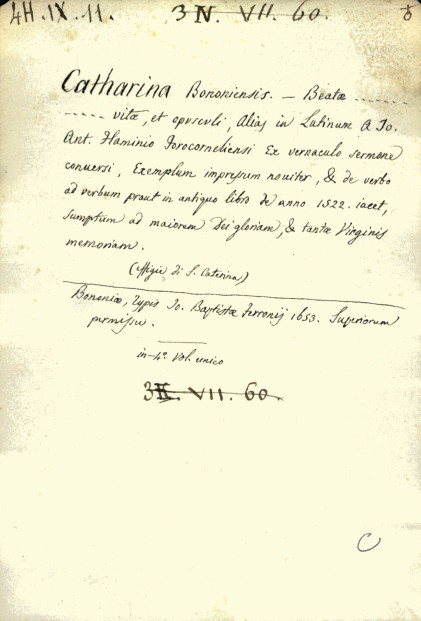 4H.IX.11. 3N. VII. 60.
Catharina Bononiensis. — Beatæ .......
....... vitæ, et opusculi, Alias in Latinum A Jo.
Ant. Flaminio Forocorneliensi Ex vernaculo sermone
conversi, Exemplum impressum noviter, & de verbo
ad verbum prout in antiquo libro de anno 1522. iacet,
sumptum ad maiorem Dei gloriam, & tantæ Virginis
memoriam.
(effigie di S. Caterina)
Bononiæ, Typis Jo. Baptistæ Ferronij 1653. Superiorum
permissu.
in-4.º Vol. unico
3 VII. 60.
C